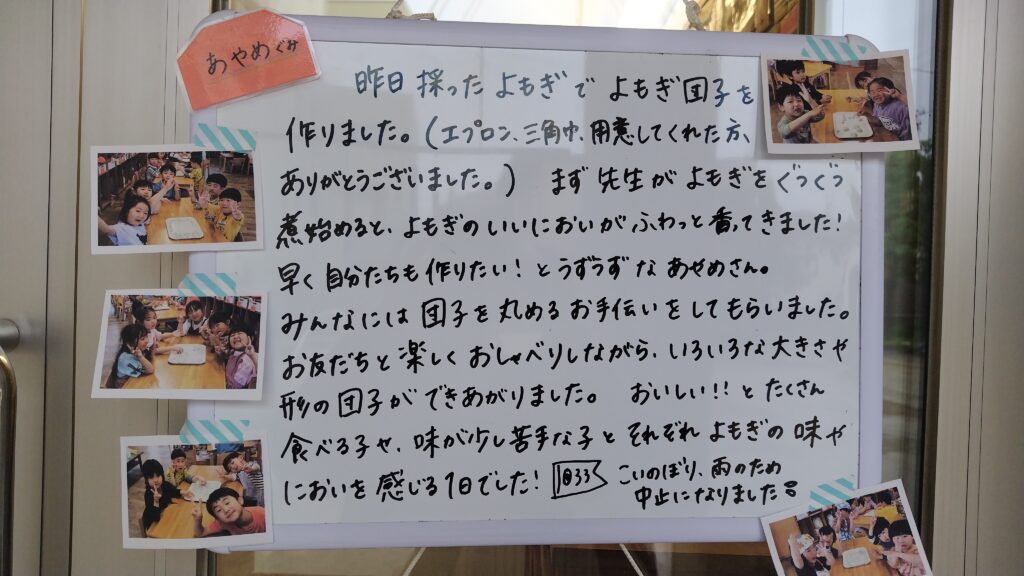 あやめぐみ
昨日採ったよもぎでよもぎ団子を
作りました。(エプロン、三角巾、用意してくれた方、
ありがとうございました。) まず先生がよもぎをぐつぐつ
煮始めると、よもぎのいいにおいがふわっと香ってきました!
早く自分たちも作りたい!とうずうずなあやめさん。
みんなには団子を丸めるお手伝いをしてもらいました。
お友だちと楽しくおしゃべりしながら、いろいろな大きさや
形の団子ができあがりました。 おいしい!!とたくさん
食べる子や、味が少し苦手な子とそれぞれよもぎの味や
においを感じる1日でした!
こいのぼり、雨のため
中止になりました